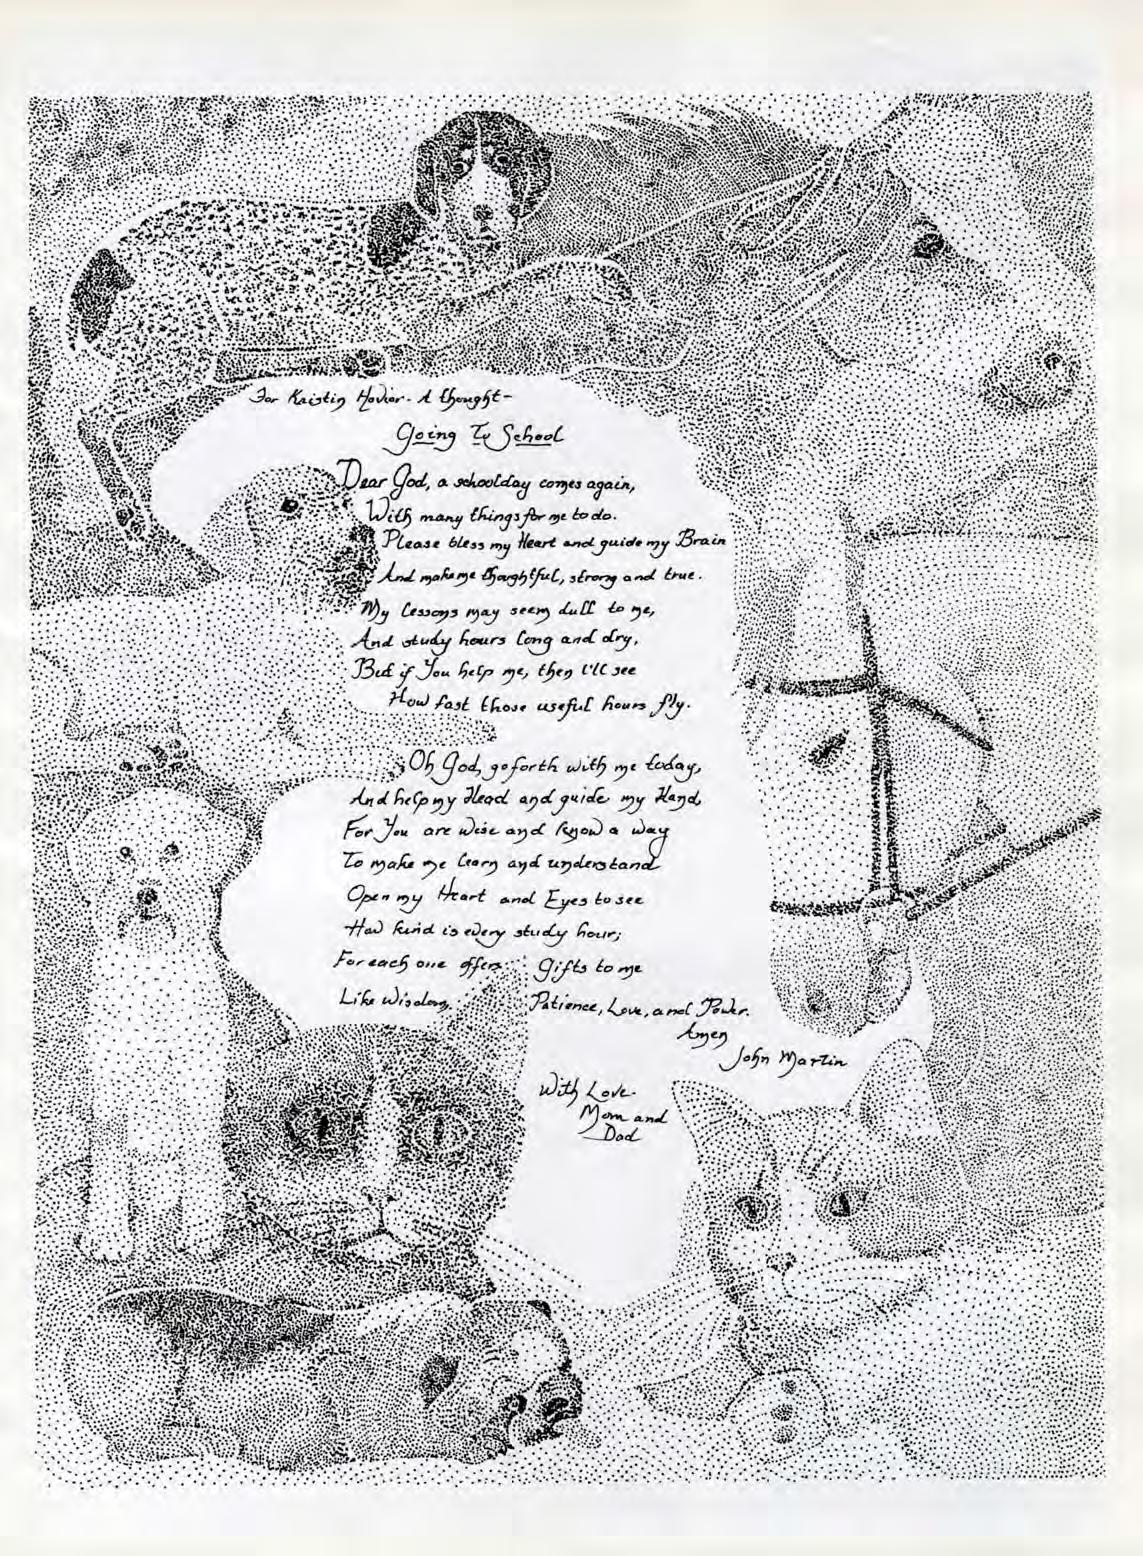 For Kristin Hovior - A thought -
Going To School
Dear God, a schoolday comes again,
With many things for me to do.
Please bless my Heart and guide my Brain
And make me thoughtful, strong and true.
My lessons may seem dull to me,
And study hours long and dry,
But if You help me, then I'll see
How fast those useful hours fly.
Oh God, go forth with me today,
And help my Head and guide my Hand,
For You are wise and know a way
To make me learn and understand
Open my Heart and Eyes to see
How kind is every study hour;
For each one offers Gifts to me
Like Wisdom, Patience, Love, and Power.
Amen
John Martin
With Love
Mom and
Dad